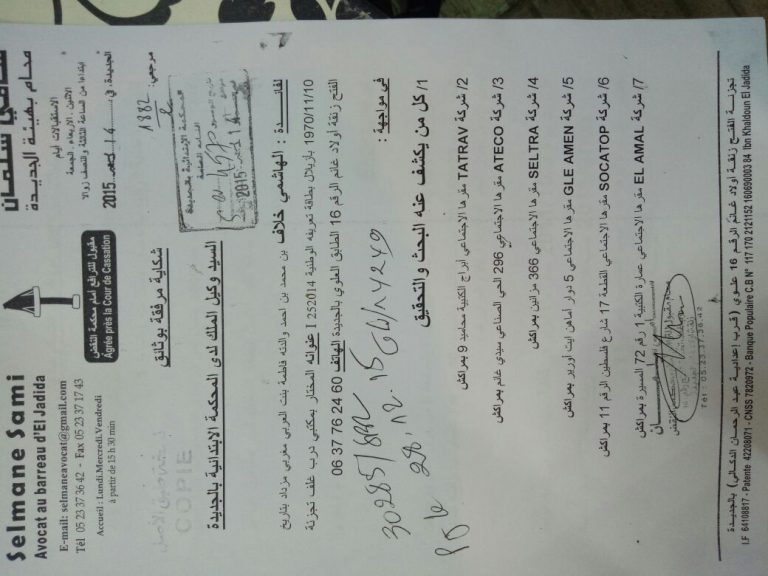 Selmane Sami
Avocat au barreau d'El Jadida
E-mail: selmaneavocat@gmail.com
Tél 05 23 37 36 42 - Fax 05 23 37 17 43
Accueil : Lundi.Mercredi.Vendredi
à partir de 15 h 30 min
مقبول للترافع أمام محكمة النقض
Agrée près la Cour de Cassation
سامي سلمان
محام بهيئة الجديدة
الاستقبالات أيام
الاثنين، الأربعاء، الجمعة
ابتداء من الساعة الثالثة والنصف زوالا
الجديدة، في 14 2015
مرجعي: 1882
المحكمة الابتدائية بالجديدة
14 2015
شكاية مرفقة بوثائق
نسخة طبق الأصل
COPIE
السيد وكيل الملك لدى المحكمة الابتدائية بالجديدة
لفائدة : الهاشمي خلاف بن محمد بن احمد والدته فاطمة بنت العربي مغربي مزداد بتاريخ
1970/11/10 بازيلال بطاقة تعريفه الوطنية I 252014 عنوانه المختار بمكتبي درب غلف تجزئة
الفتح زنقة أولاد غانم الرقم 16 الطابق العلوي بالجديدة الهاتف 06 37 76 24 60
في مواجهة :
28.12.15
1/ كل من يكشف عنه البحث والتحقيق
2/ شركة TATRAV مقرها الاجتماعي أبراج الكتبية محاميد 9 بمراكش
3/ شركة ATECO مقرها الاجتماعي 296 الحي الصناعي سيدي غانم بمراكش
4/ شركة SELTRA مقرها الاجتماعي 366 بمراكش
5/ شركة GLE AMEN مقرها الاجتماعي 5 دوار ايت أورير بمراكش
6/ شركة SOCATOP مقرها الاجتماعي القطعة 17 شارع فلسطين الرقم 11 بمراكش
7/ شركة EL AMAL مقرها الاجتماعي عمارة الكتبية 1 رقم 72 المسيرة بمراكش
Tél : 05.23.37.36.42
تجزئة الفتح زنقة أولاد غانم الرقم 16 علوي (قرب إعدادية عبد الرحمان الدكالي) بالجديدة
I.F 64108817 - Patente 42208071 - CNSS 7820972 - Banque Populaire C.B N° 117 170 2121152 160690003 84 Ibn Khaldoun El Jadida